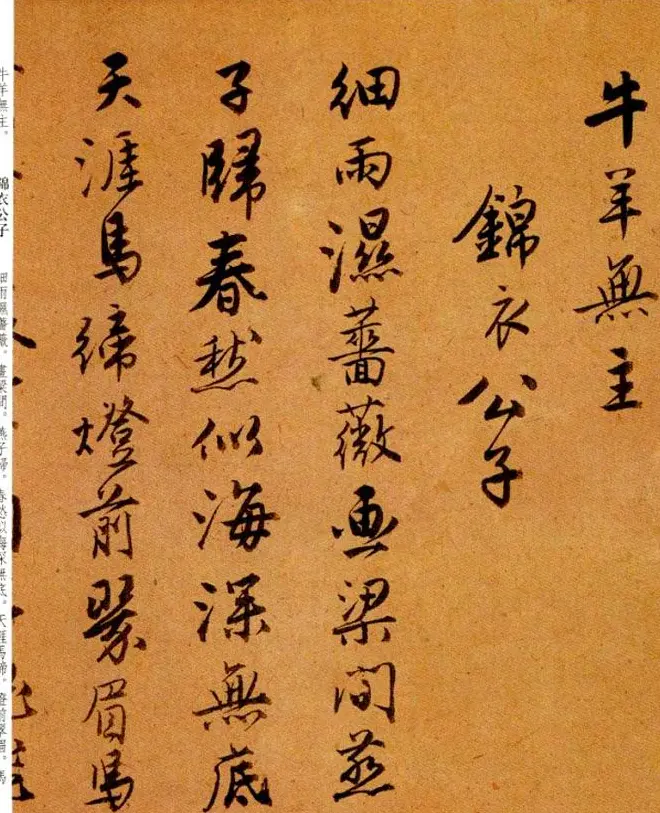 牛羊無主
錦衣公子
細雨濕薔薇画梁間燕
子歸春愁似海深無底
天涯馬締燈前翠眉馬
牛羊無主。 錦衣公子 細雨濕薔薇。畫梁間。燕子歸。春愁似海深無底。天涯馬締。燈前翠眉。馬